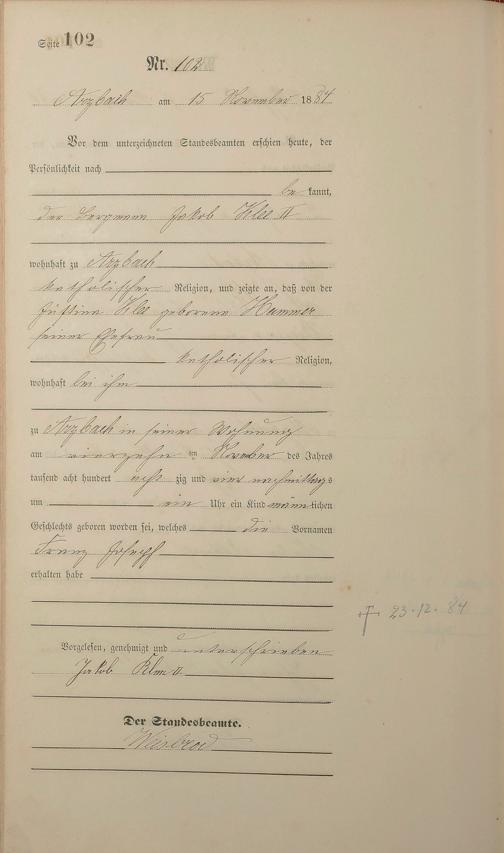 Seite 102
Nr. 102
Arzbach am 15 November 1884
Vor dem unterzeichneten Standesbeamten erschien heute, der
Persönlichkeit nach
be kannt,
der Bergmann Jakob Klee II
wohnhaft zu Arzbach
katholischer Religion, und zeigte an, daß von der
Justina Klee geborene Hammer
seiner Ehefrau
katholischer Religion,
wohnhaft bei ihm
zu Arzbach in seiner Wohnung
am vierzehn ten November des Jahres
tausend acht hundert acht zig und vier nachmittags
um ein Uhr ein Kind männlichen
Geschlechts geboren worden sei, welches die Vornamen
Franz Joseph
erhalten habe
† 23.12.84
Vorgelesen, genehmigt und unterschrieben
Jakob II
Der Standesbeamte.
Weisbrod